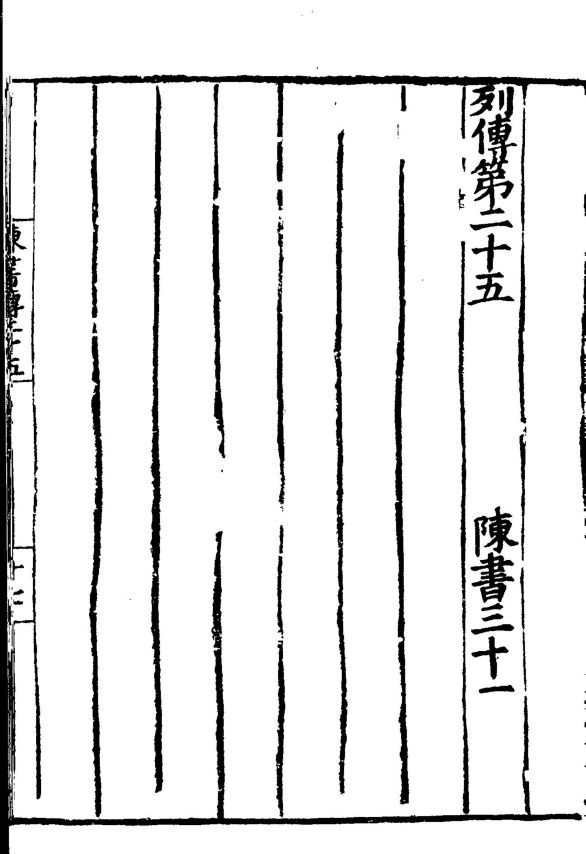 列傳第二十五
陳書三十一
陳書傳二十五
十七